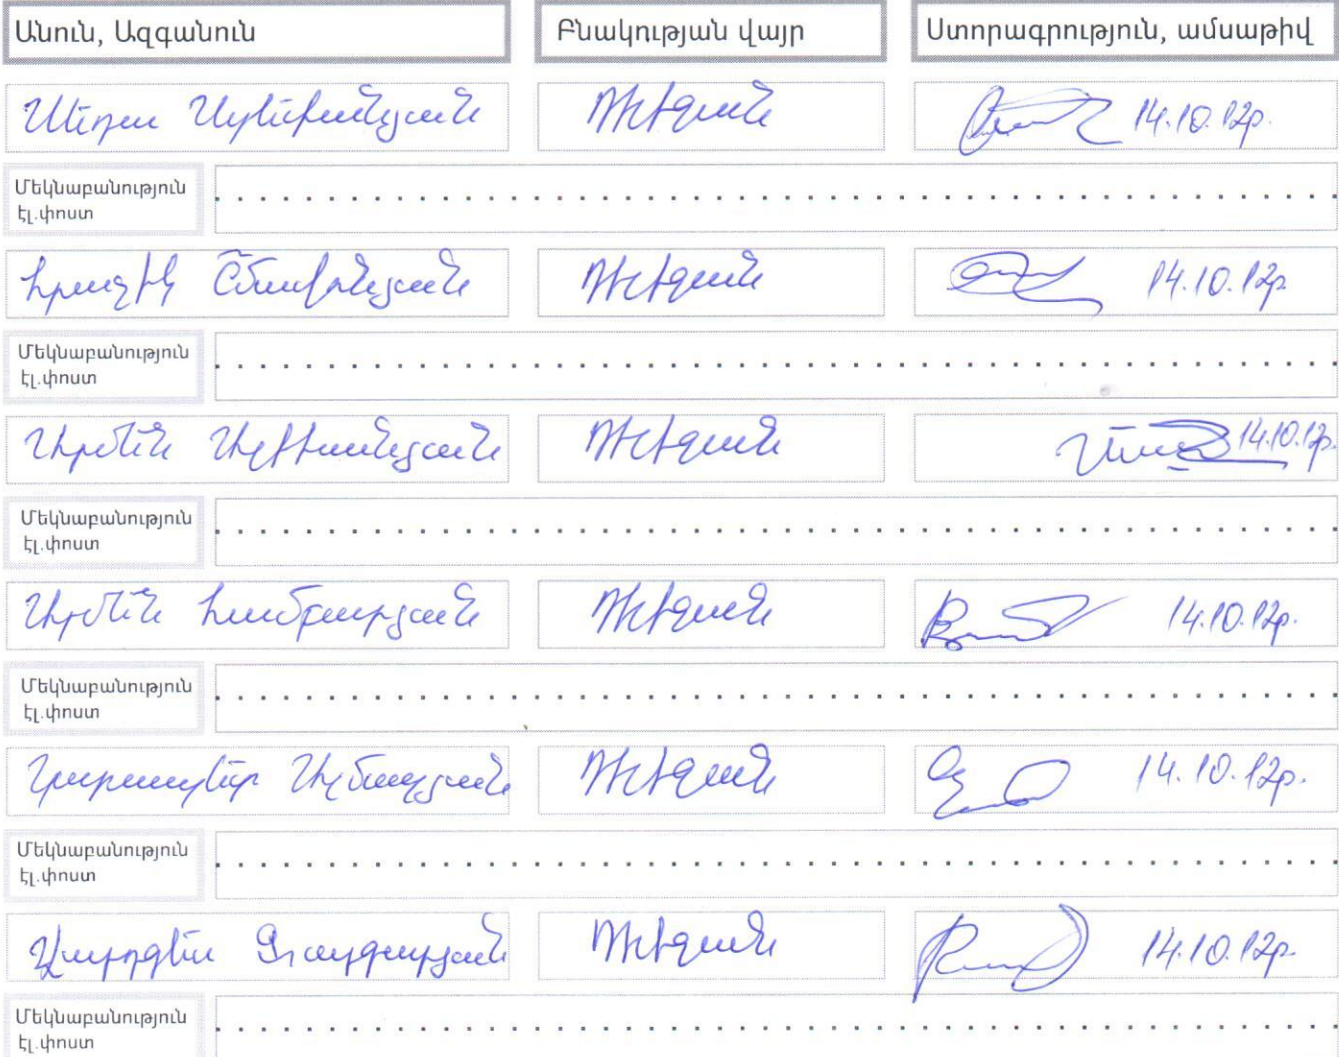 Անուն, Ազգանուն Բնակության վայր Ստորագրություն, ամսաթիվ
Դիլիջան 14.10.12թ.
Մեկնաբանություն
էլ.փոստ
Հրաչիկ Շմավոնյան Դիլիջան 14.10.12թ.
Մեկնաբանություն
էլ.փոստ
Արմեն Ալիխանյան Դիլիջան 14.10.12թ.
Մեկնաբանություն
էլ.փոստ
Արմեն Համբարյան Դիլիջան 14.10.12թ.
Մեկնաբանություն
էլ.փոստ
Կարապետ Դիլիջան 14.10.12թ.
Մեկնաբանություն
էլ.փոստ
Վարդգես Դիլիջան 14.10.12թ.
Մեկնաբանություն
էլ.փոստ